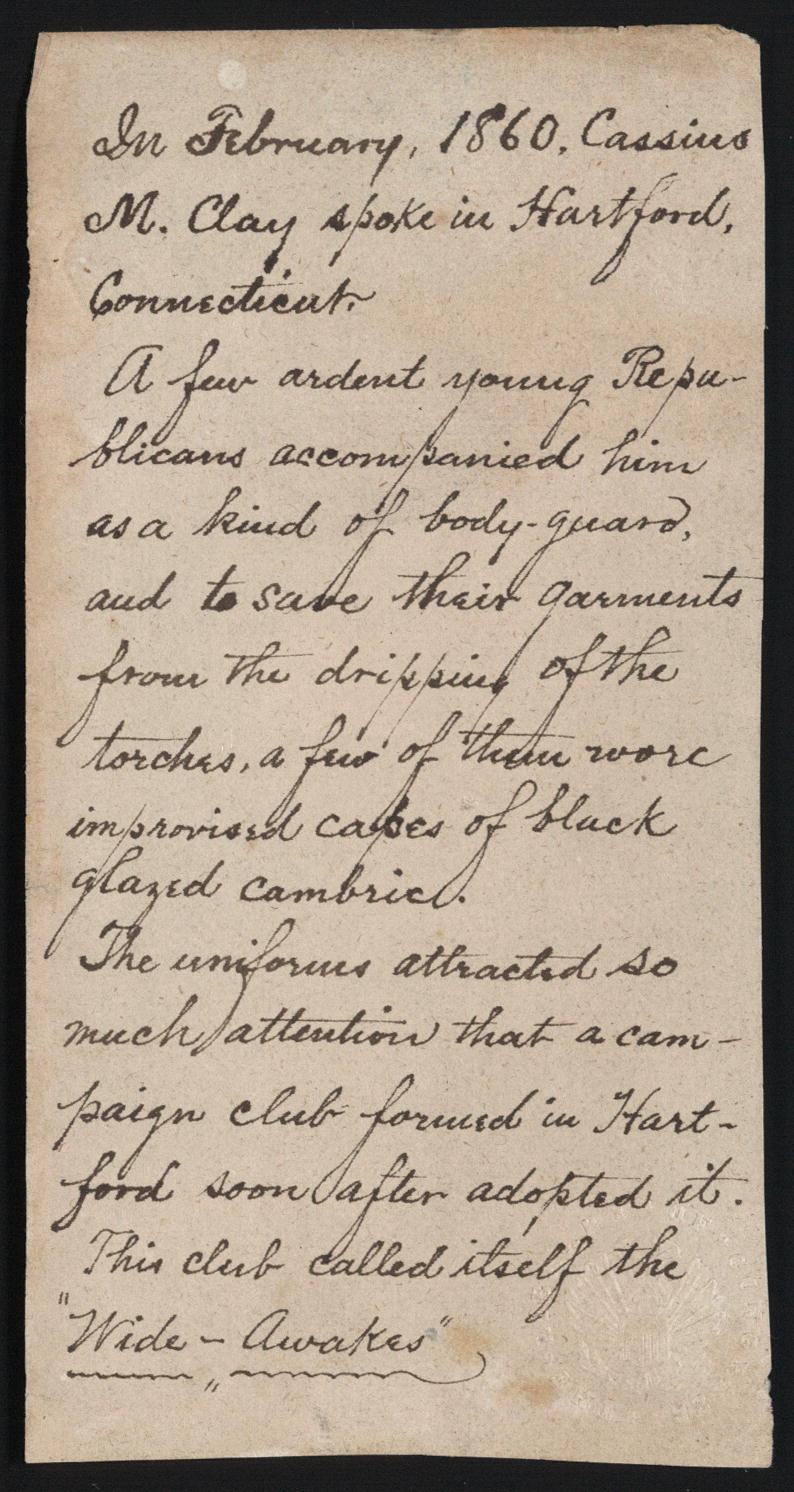 In February, 1860, Cassius
M. Clay spoke in Hartford,
Connecticut.
A few ardent young Repu-
blicans accompanied him
as a kind of body-guard,
and to save their garments
from the dripping of the
torches, a few of them wore
improvised capes of black
glazed cambric.
The uniforms attracted so
much attention that a cam-
paign club formed in Hart-
ford soon after adopted it.
This club called itself the
"Wide - Awakes"